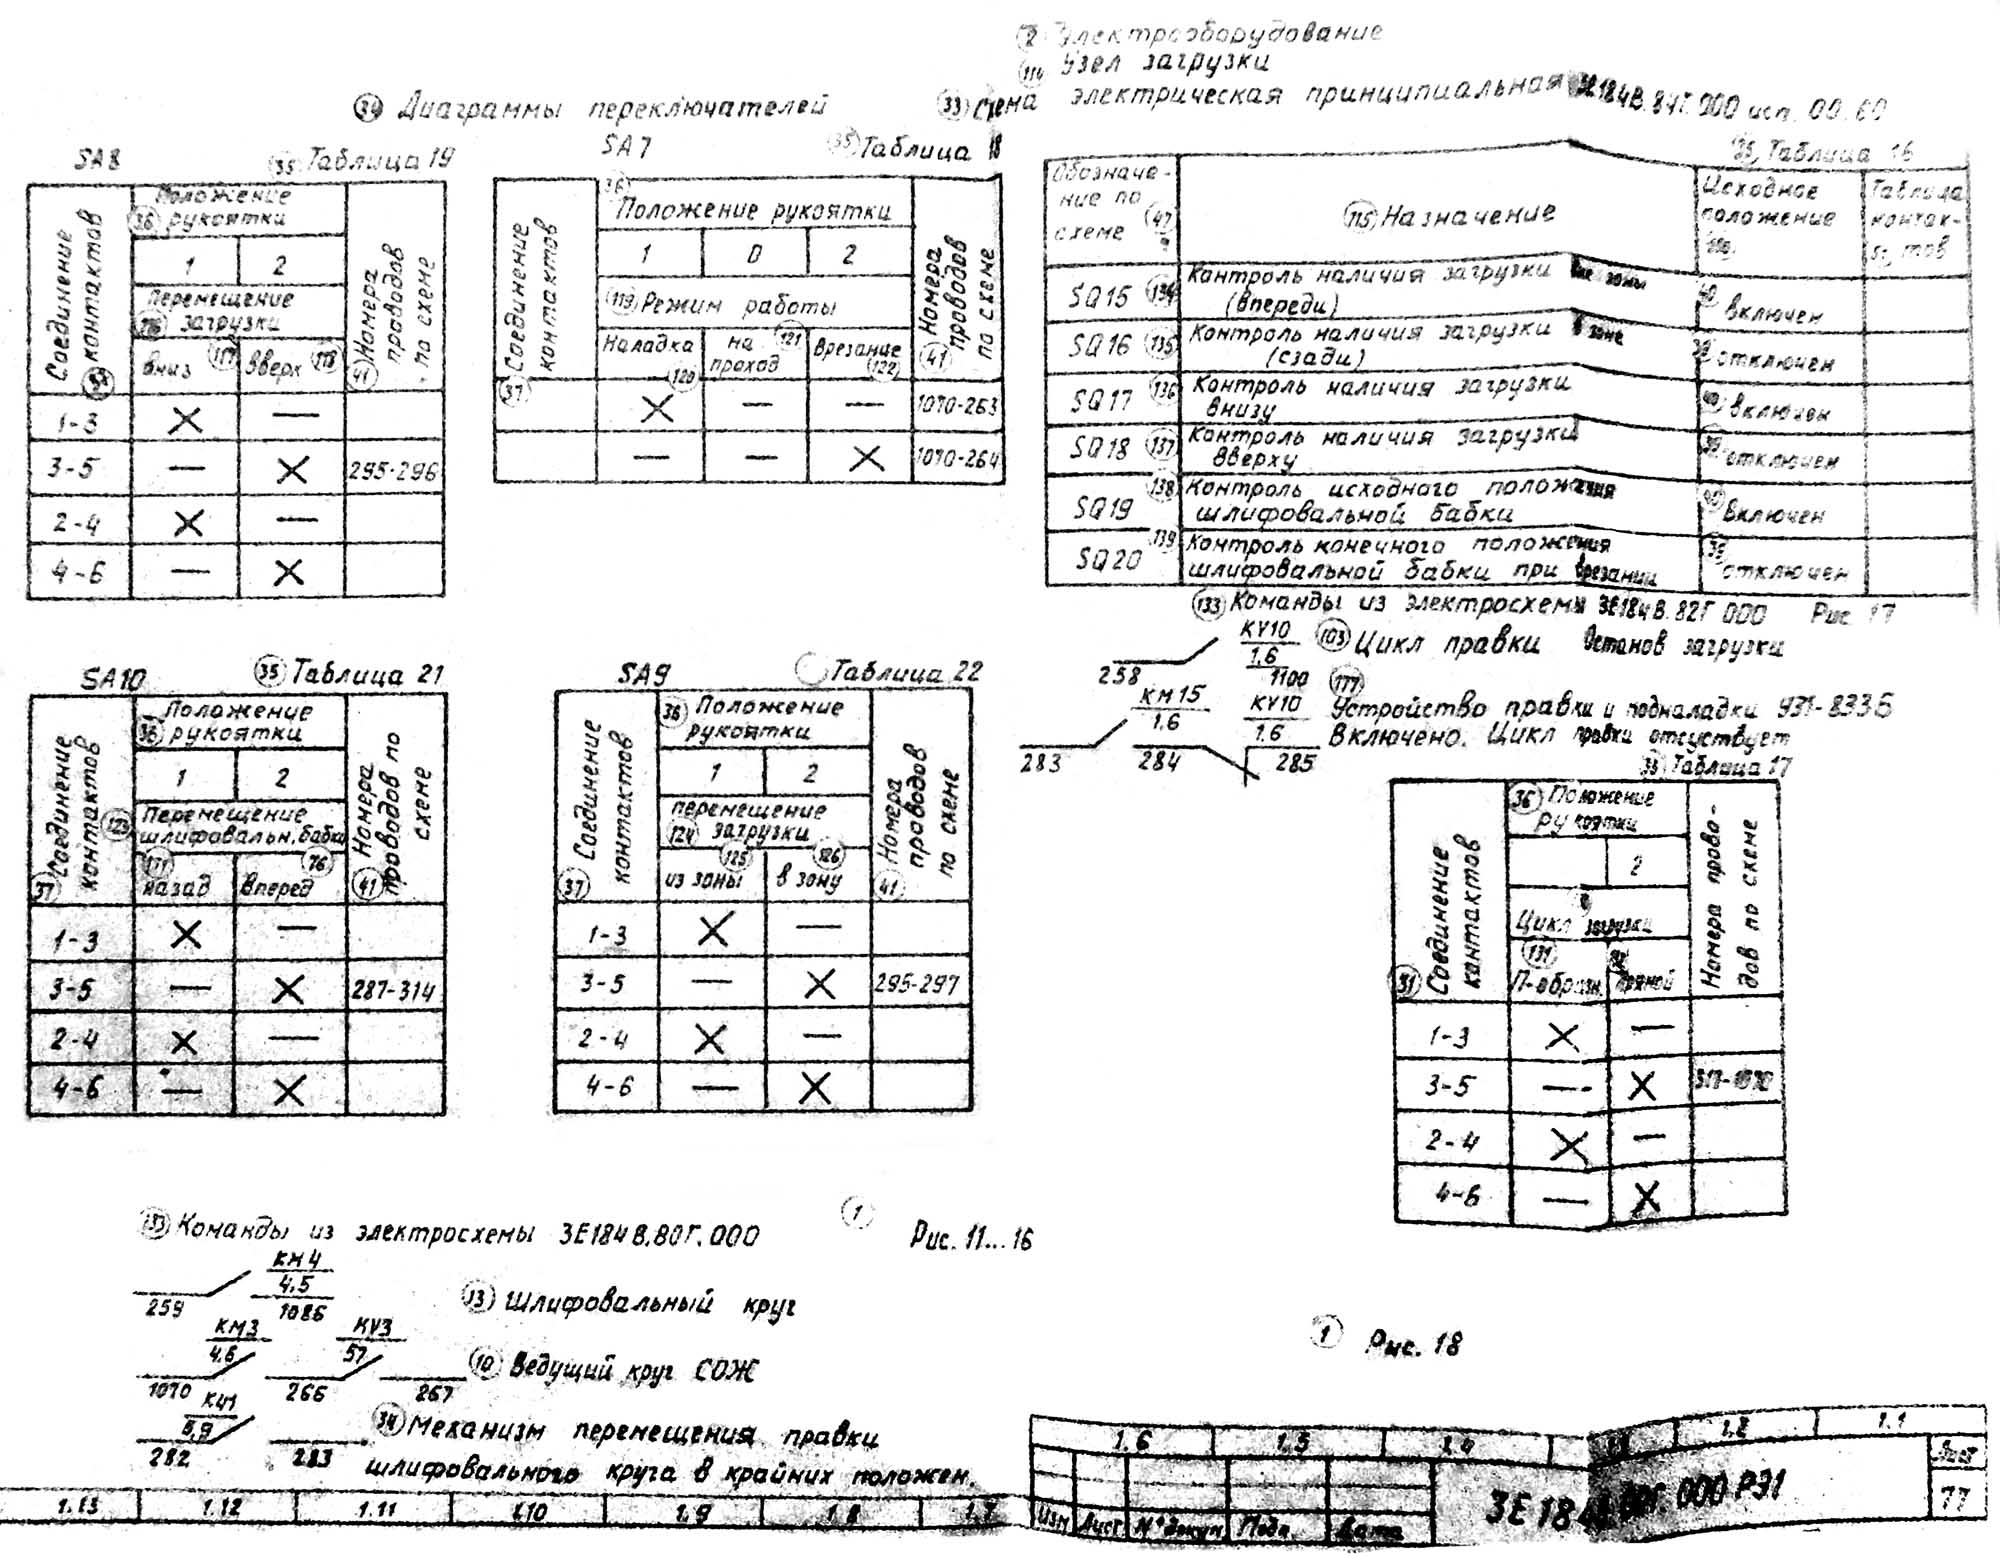 2 Электрооборудование
114 Узел загрузки
33 Схема электрическая принципиальная 3Е184В.84Г.000 исп. 00.60
34 Диаграммы переключателей
SA8 35 Таблица 19
Соединение контактов
36 Положение рукоятки
41 Номера проводов по схеме
1 2
116 Перемещение загрузки
вниз 117 вверх 118
1-3 × —
3-5 — × 295-296
2-4 × —
4-6 — ×
SA7 35 Таблица 18
37 Соединение контактов
36 Положение рукоятки
41 Номера проводов по схеме
1 0 2
119 Режим работы
Наладка 120 на проход 121 врезание 122
× — — 1070-263
— — × 1070-264
35 Таблица 16
Обозначение по схеме 47
115 Назначение
Исходное положение
Таблица контактов
SQ15 134 Контроль наличия загрузки вне зоны
(впереди) 40 включен
SQ16 135 Контроль наличия загрузки в зоне
(сзади) 39 отключен
SQ17 136 Контроль наличия загрузки
внизу 40 включен
SQ18 137 Контроль наличия загрузки
вверху 39 отключен
SQ19 138 Контроль исходного положения
шлифовальной бабки 40 включен
SQ20 139 Контроль конечного положения
шлифовальной бабки при врезании 39 отключен
133 Команды из электросхемы 3Е184В.82Г.000 Рис. 17
258 KV10 1.6 1100 103 Цикл правки Останов загрузки
177
283 КМ15 1.6 284 KV10 1.6 285
Устройство правки и подналадки УЗ1-8336
Включено. Цикл правки отсуствует
SA10 35 Таблица 21
37 Соединение контактов
36 Положение рукоятки
41 Номера проводов по схеме
1 2
123 Перемещение шлифовальн. бабки
171 назад вперед 76
1-3 × —
3-5 — × 287-314
2-4 × —
4-6 — ×
SA9 Таблица 22
37 Соединение контактов
36 Положение рукоятки
41 Номера проводов по схеме
1 2
124 перемещение загрузки
125 из зоны 126 в зону
1-3 × —
3-5 — × 295-297
2-4 × —
4-6 — ×
Таблица 17
Соединение контактов
36 Положение рукоятки
Номера проводов по схеме
2
Цикл загрузки
131 П-образн. прямой
1-3 × —
3-5 — ×
2-4 × —
4-6 — ×
133 Команды из электросхемы 3Е184В.80Г.000 1 Рис. 11...16
259 КМ4 4.5 1086 13 Шлифовальный круг
1070 КМ3 4.6 266 KV3 57 267 10 Ведущий круг СОЖ
282 283 34 Механизм перемещения правки
шлифовального круга в крайних положен.
1 Рис. 18
1.13 1.12 1.11 1.10 1.9 1.8 1.7
1.6 1.5 1.4 1.3 1.2 1.1
Изм Лист № докум Подп. Дата
3Е184В.80Г.000 РЭ1
Лист
77